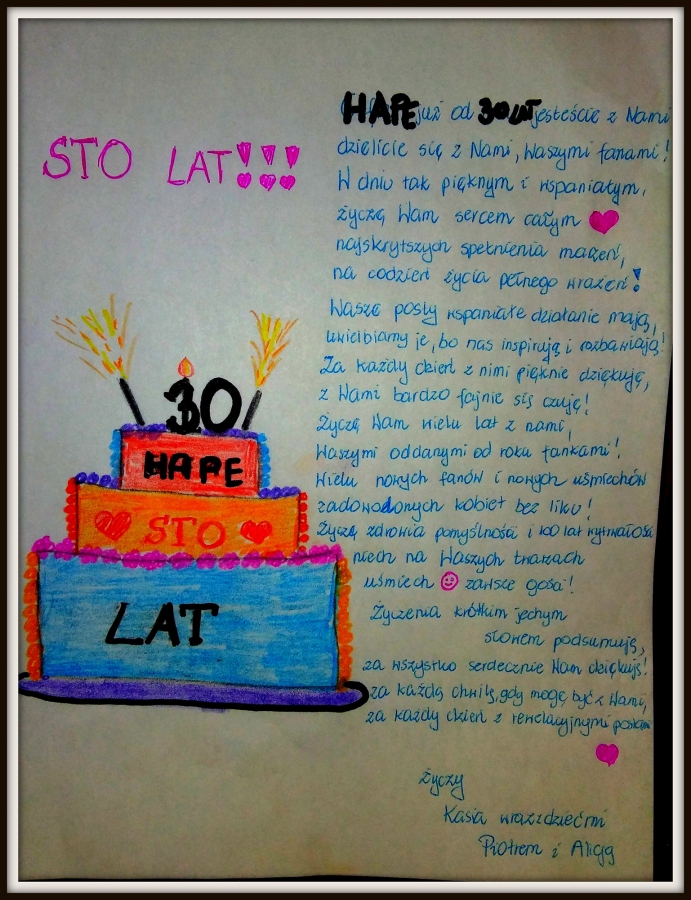 STO LAT!!!
30
HAPE
STO
LAT
HAPE już od 30 LAT jesteście z Nami
dzielicie się z Nami, Waszymi fanami!
W dniu tak pięknym i wspaniałym,
życzę Wam sercem całym
najskrytszych spełnienia marzeń,
na codzień życia pełnego wrażeń!
Wasze posty wspaniałe działanie mają,
uwielbiamy je, bo nas inspirują i rozbawiają!
Za każdy dzień z nimi pięknie dziękuję,
z Wami bardzo fajnie się czuję!
Życzę Wam wielu lat z nami,
Waszymi oddanymi od roku fankami!
Wielu nowych fanów i nowych uśmiechów
zadowodonych kobiet bez liku!
Życzę zdrowia pomyślności i 100 lat wytrwałości
niech na Waszych twarzach
uśmiech zawsze gości!
Życzenia krótkim jednym
słowem podsumują,
za wszystko serdecznie Wam dziękuję!
za każdą chwilę, gdy mogę być z Wami,
za każdy dzień z rewelacyjnymi postami
życzy
Kasia wraz z dziećmi
Piotrem i Alicją